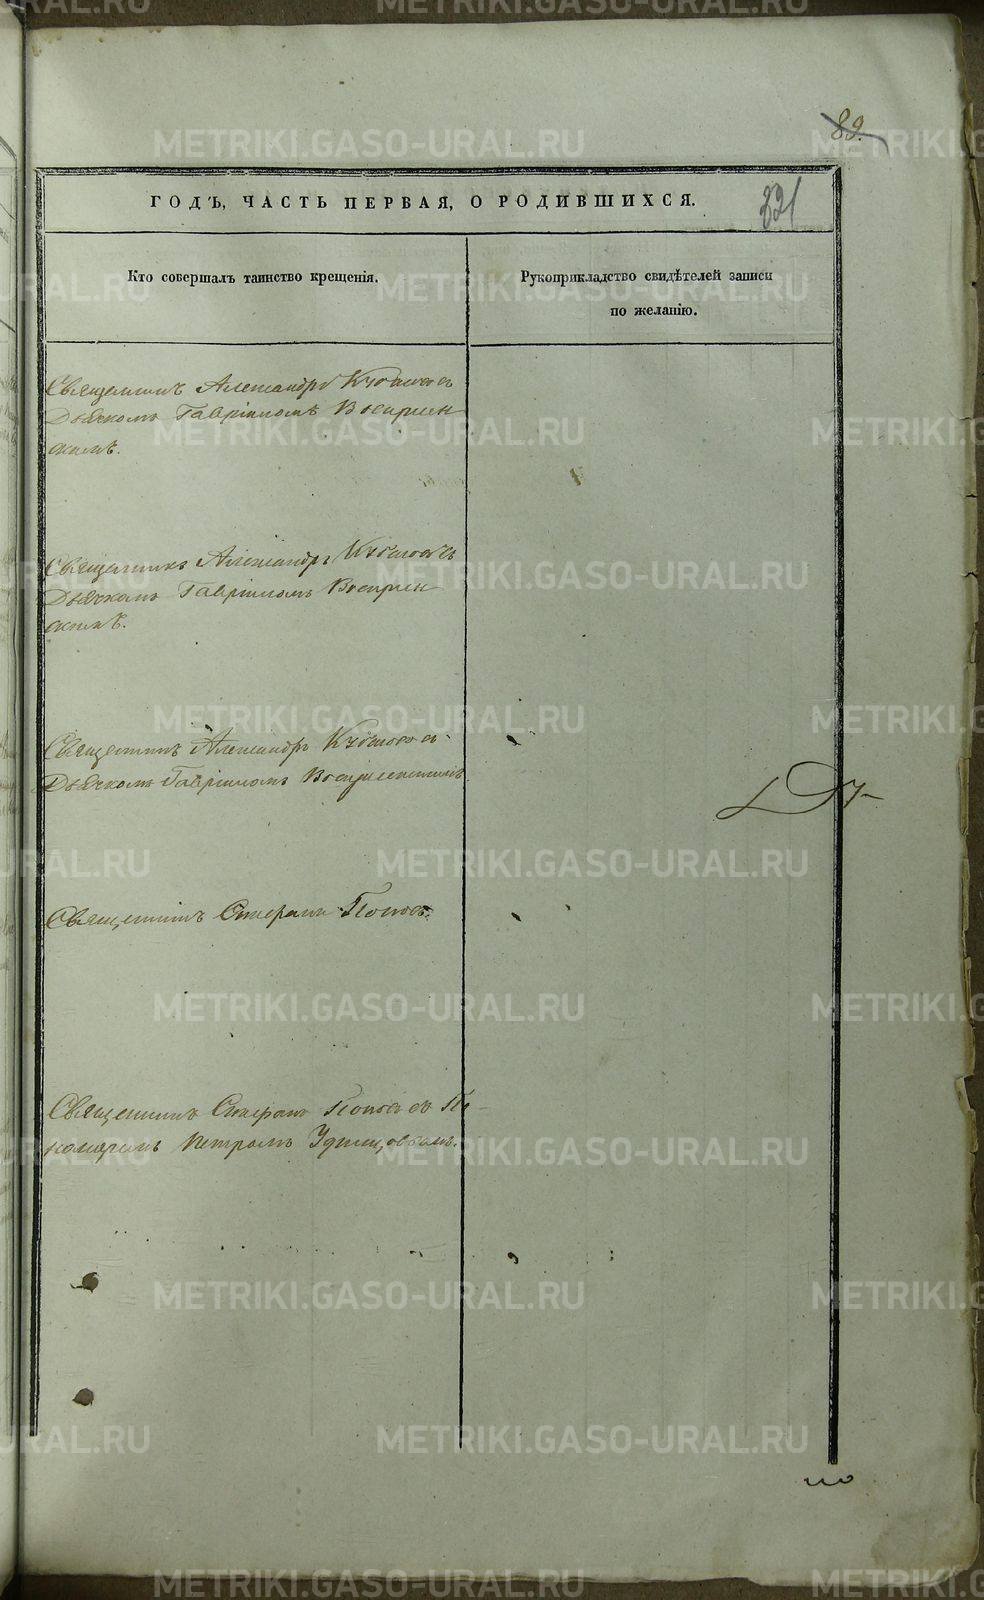 89.
ГОДЪ, ЧАСТЬ ПЕРВАЯ, О РОДИВШИХСЯ.
221
Кто совершалъ таинство крещенія.
Рукоприкладство свидѣтелей записи
по желанію.
Священникъ Александръ съ
Дьячкомъ Гавріиломъ Воскресен
скимъ.
Священникъ Александръ съ
Дьячкомъ Гавріиломъ Воскресен
скимъ.
Священникъ Александръ съ
Дьячкомъ Гавріиломъ Воскресенскимъ
Священникъ Стефанъ Поповъ.
Священникъ Стефанъ Поповъ съ По
номаремъ Петромъ Удинцовымъ.
METRIKI.GASO-URAL.RU